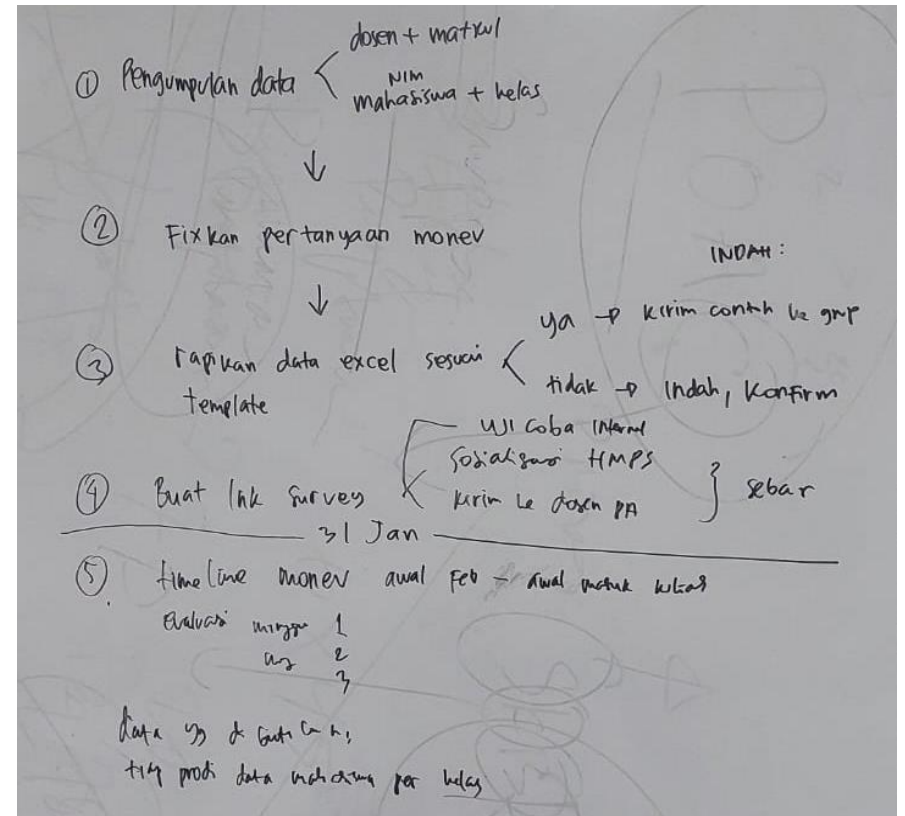 ① Pengumpulan data < dosen + matkul
NIM
mahasiswa + kelas
↓
② Fixkan pertanyaan monev
↓
INDAH :
③ rapikan data excel sesuai < ya → kirim contoh ke grup
template
tidak → Indah, Konfirm
④ Buat link survey < uji coba internal
sosialisasi HMPS
kirim ke dosen PA } sebar
31 Jan
⑤ timeline monev awal Feb - awal masuk kelas
Evaluasi minggu 1
2
3
data yg
tiap prodi data mahasiswa per kelas